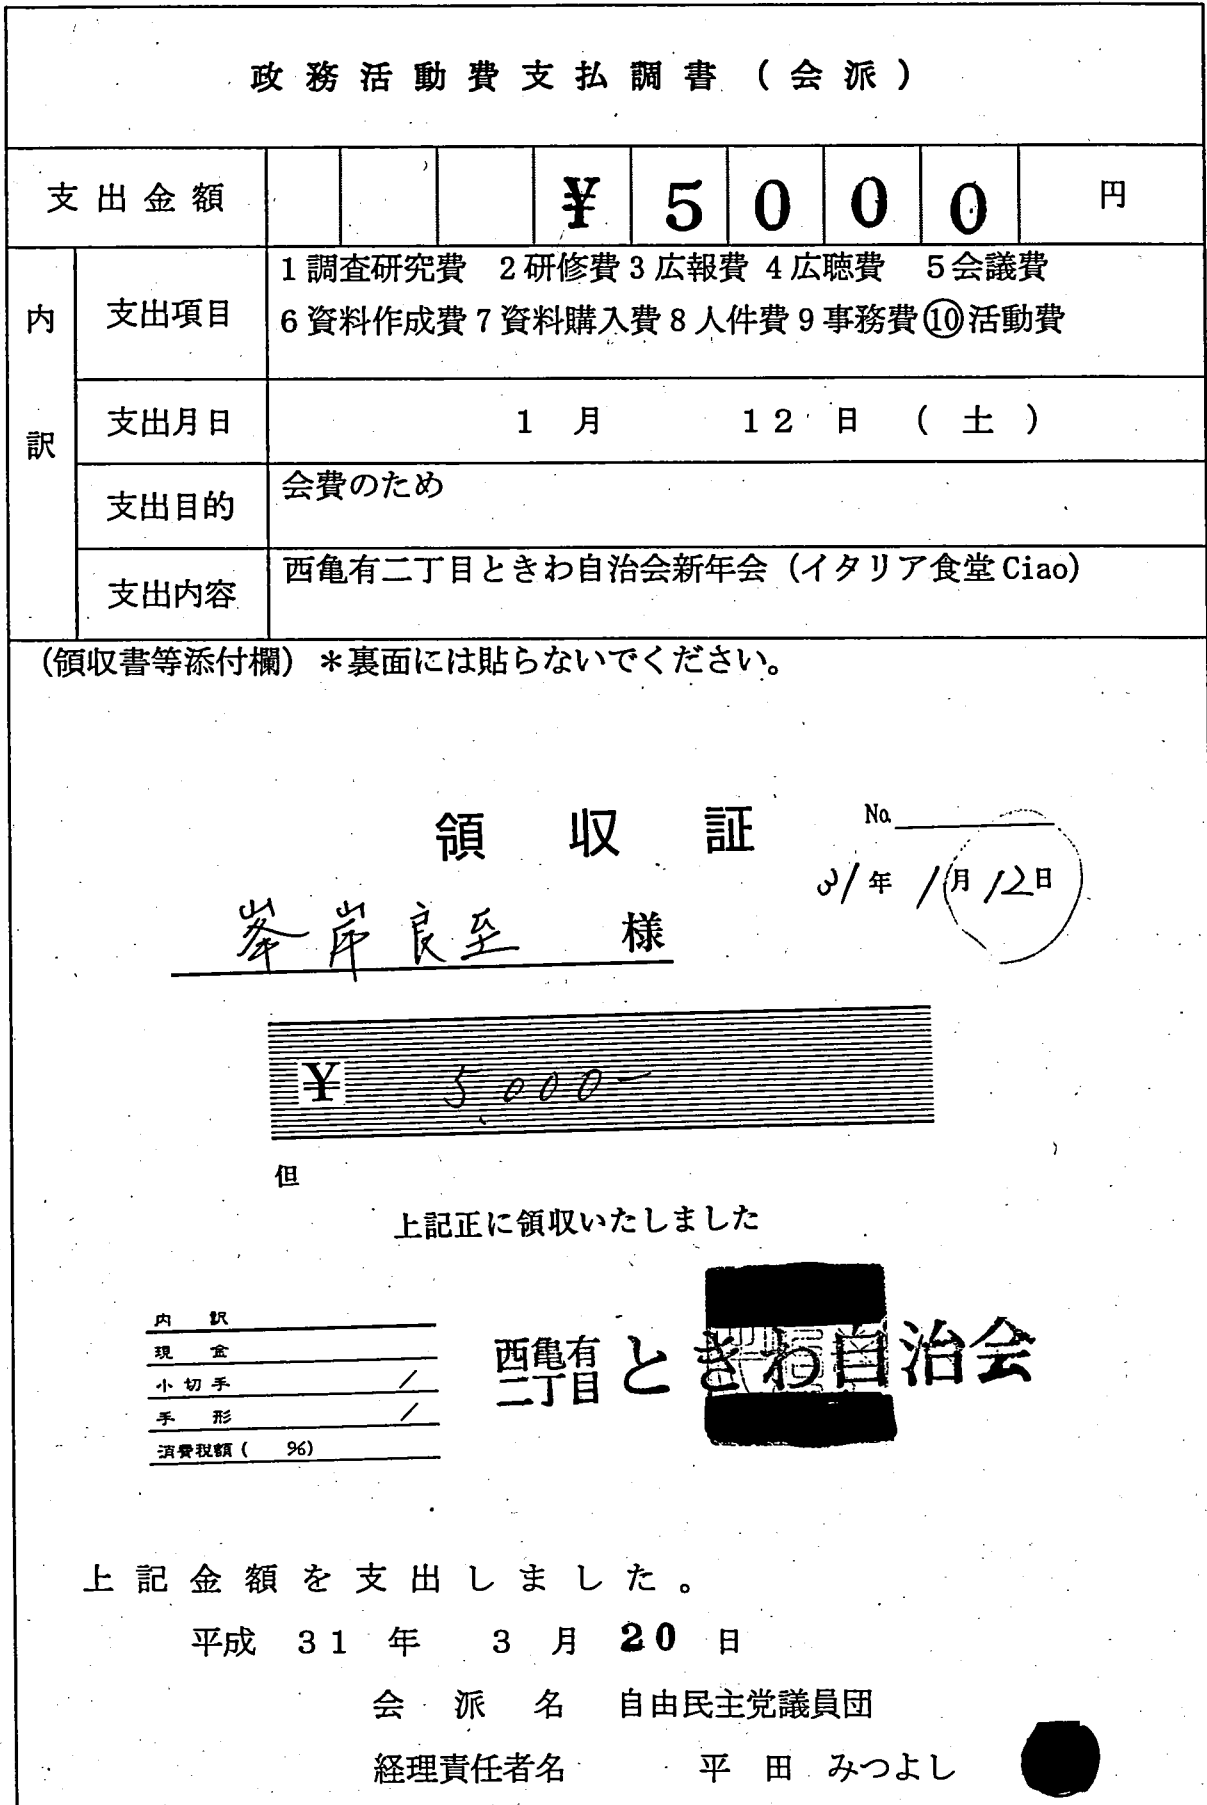 政務活動費支払調書（会派）
支出金額 ¥5000円
内訳
支出項目
1調査研究費 2研修費 3広報費 4広聴費 5会議費
6資料作成費 7資料購入費 8人件費 9事務費 ⑩活動費
支出月日 1月 12日（土）
支出目的 会費のため
支出内容 西亀有二丁目ときわ自治会新年会（イタリア食堂Ciao）
（領収書等添付欄）＊裏面には貼らないでください。
領収証 No.
31年 1月 12日
峯岸良至 様
¥ 5,000-
但
上記正に領収いたしました
内訳
現金
小切手 /
手形 /
消費税額( %)
西亀有二丁目 ときわ自治会
上記金額を支出しました。
平成 31年 3月 20日
会派名 自由民主党議員団
経理責任者名 平田 みつよし